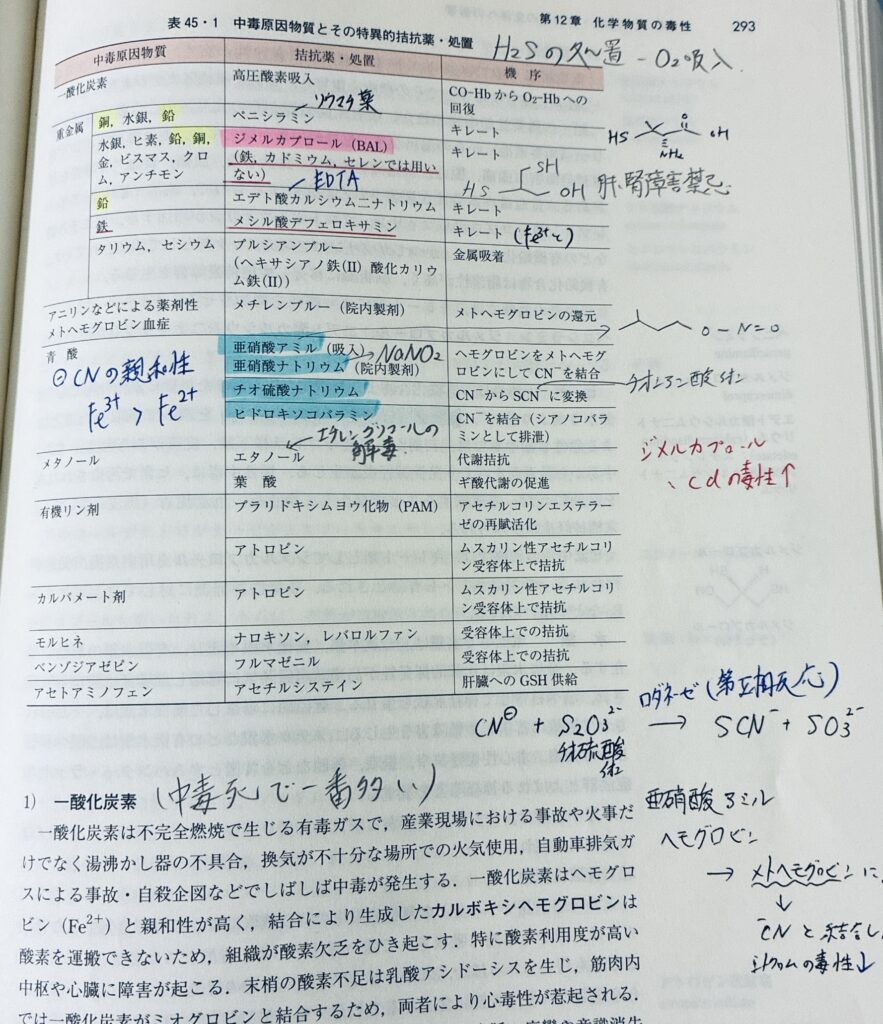 第12章 化学物質の毒性 293
表 45・1 中毒原因物質とその特異的拮抗薬・処置
H2Sの処置 - O2吸入
中毒原因物質 拮抗薬・処置 機序
一酸化炭素 高圧酸素吸入 CO-Hb から O₂-Hb への
回復
リウマチ薬
重金属 銅, 水銀, 鉛 ペニシラミン キレート
水銀, ヒ素, 鉛, 銅, ジメルカプロール (BAL) キレート
金, ビスマス, クロ (鉄, カドミウム, セレンでは用い
ム, アンチモン ない)
HS OH NH2 O
SH
HS OH 肝, 腎障害禁忌
EDTA
鉛 エデト酸カルシウム二ナトリウム キレート
鉄 メシル酸デフェロキサミン キレート (Fe3+と)
タリウム, セシウム プルシアンブルー 金属吸着
(ヘキサシアノ鉄(II) 酸化カリウ
ム鉄(II))
アニリンなどによる薬剤性 メチレンブルー (院内製剤) メトヘモグロビンの還元
メトヘモグロビン血症
O-N=O
青酸 亜硝酸アミル (吸入) ヘモグロビンをメトヘモグ
亜硝酸ナトリウム (院内製剤) ロビンにして CN⁻を結合
→NaNO2
チオ硫酸ナトリウム CN⁻から SCN⁻に変換
チオシアン酸イオン
ヒドロキソコバラミン CN⁻を結合 (シアノコバラ
ミンとして排泄)
⊖CNの親和性
Fe3+ > Fe2+
エチレングリコールの
解毒
メタノール エタノール 代謝拮抗
葉酸 ギ酸代謝の促進
ジメルカプロール
、Cdの毒性↑
有機リン剤 プラリドキシムヨウ化物 (PAM) アセチルコリンエステラー
ゼの再賦活化
アトロピン ムスカリン性アセチルコリ
ン受容体上で拮抗
カルバメート剤 アトロピン ムスカリン性アセチルコリ
ン受容体上で拮抗
モルヒネ ナロキソン, レバロルファン 受容体上での拮抗
ベンゾジアゼピン フルマゼニル 受容体上での拮抗
アセトアミノフェン アセチルシステイン 肝臓への GSH 供給
ロダネーゼ (第Ⅱ相反応)
CN⊖ + S2O3 2- → SCN- + SO3 2-
チオ硫酸
1) 一酸化炭素 (中毒死で一番多い)
一酸化炭素は不完全燃焼で生じる有毒ガスで, 産業現場における事故や火事だ
けでなく湯沸かし器の不具合, 換気が不十分な場所での火気使用, 自動車排気ガ
スによる事故・自殺企図などでしばしば中毒が発生する. 一酸化炭素はヘモグロ
ビン (Fe²⁺) と親和性が高く, 結合により生成したカルボキシヘモグロビンは
酸素を運搬できないため, 組織が酸素欠乏をひき起こす. 特に酸素利用度が高い
中枢や心臓に障害が起こる. 末梢の酸素不足は乳酸アシドーシスを生じ, 筋肉内
では一酸化炭素がミオグロビンと結合するため, 両者により心毒性が惹起される.
亜硝酸アミル
ヘモグロビン
→ メトヘモグロビンに
↓
-CNと結合し
の毒性↓